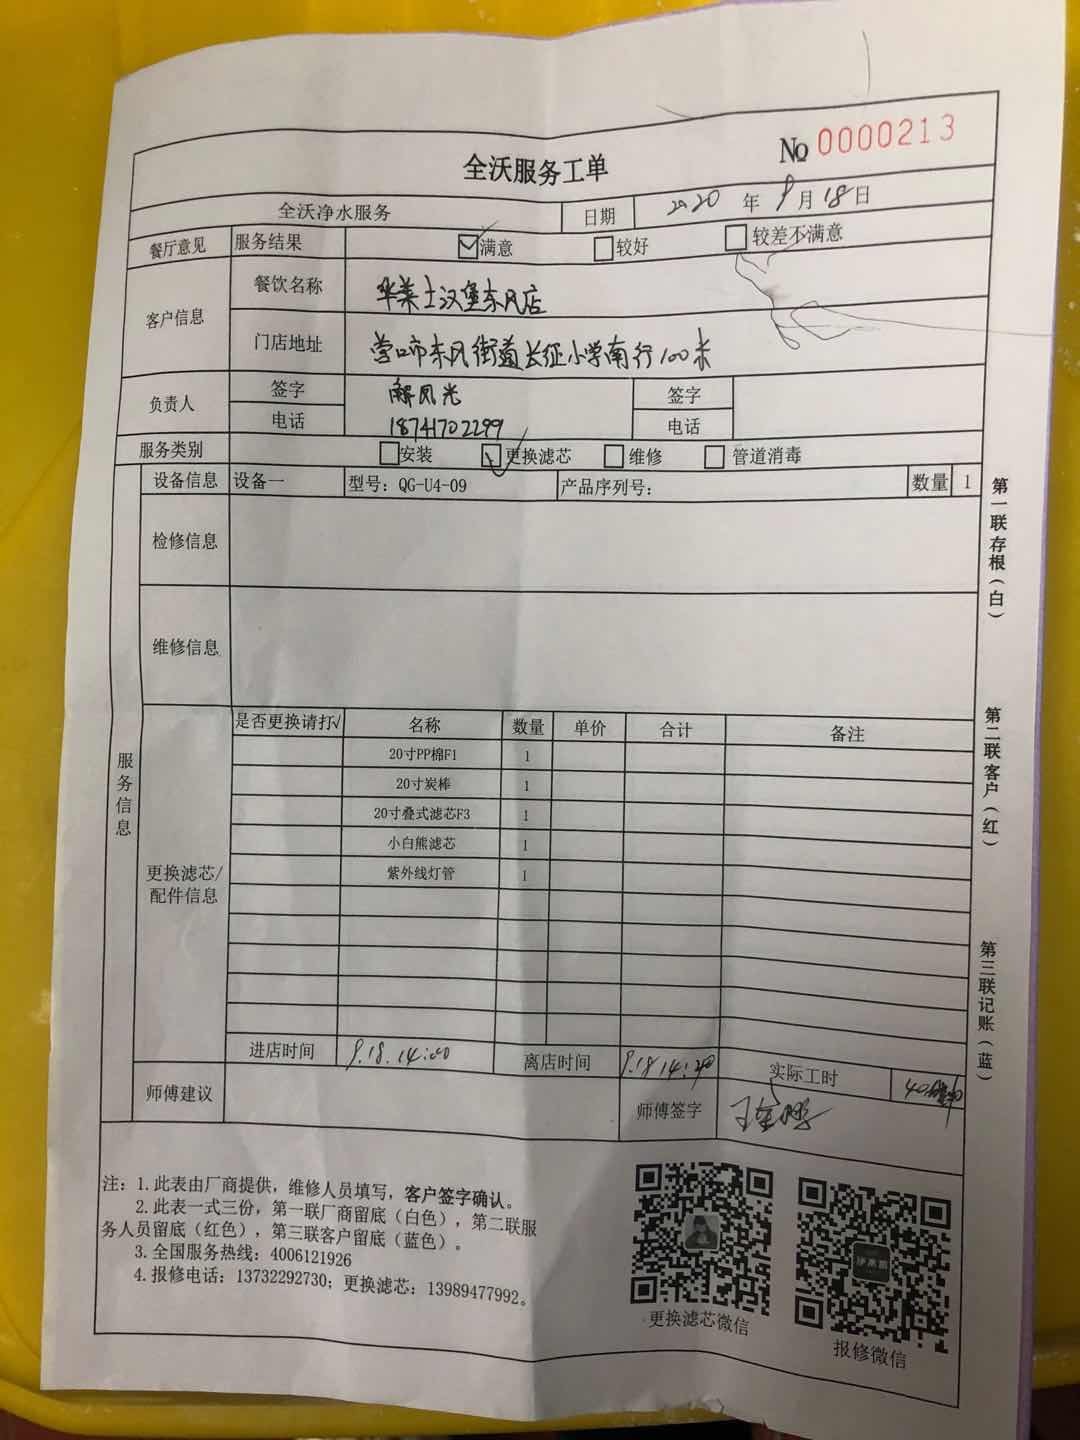 全沃服务工单
No 0000213
全沃净水服务 日期 2020 年 9 月 18 日
餐厅意见 服务结果 满意 较好 较差不满意
客户信息
餐饮名称 华莱士汉堡东风店
门店地址 营口市东风街道长征小学南行100米
负责人
签字 解凤光 签字
电话 18741702299 电话
服务类别 安装 更换滤芯 维修 管道消毒
服务信息
设备信息 设备一 型号：QG-U4-09 产品序列号： 数量 1
检修信息
维修信息
更换滤芯/
配件信息
是否更换请打√ 名称 数量 单价 合计 备注
20寸PP棉F1 1
20寸炭棒 1
20寸叠式滤芯F3 1
小白熊滤芯 1
紫外线灯管 1
进店时间 9.18.14:00 离店时间 9.18 14:40 实际工时 40分钟
师傅建议 师傅签字
注：1.此表由厂商提供，维修人员填写，客户签字确认。
2.此表一式三份，第一联厂商留底（白色），第二联服
务人员留底（红色），第三联客户留底（蓝色）。
3.全国服务热线：4006121926
4.报修电话：13732292730；更换滤芯：13989477992。
更换滤芯微信
报修微信
第一联存根（白）
第二联客户（红）
第三联记账（蓝）